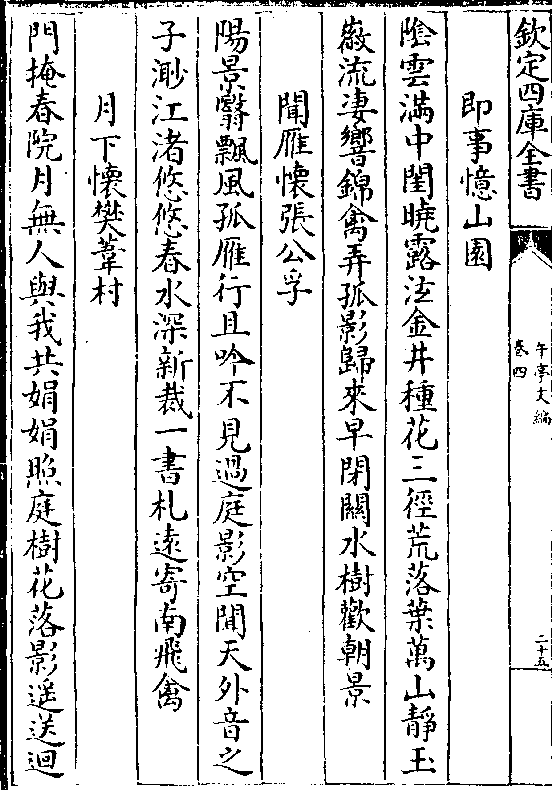 欽定四庫全書
午亭文編
卷四
二十五
即事憶山園
陰雲滿中閨曉露泫金井種花三徑荒落葉萬山靜玉
嚴流凄響錦禽弄孤影歸來早閉關水樹歡朝景
聞雁懷張公孚
陽景翳飄風孤雁行且吟不見過庭影空聞天外音之
子渺江渚悠悠春水深新裁一書札遠寄南飛禽
月下懷樊葦村
門掩春院月無人與我共娟娟照庭樹花落影遥送迴